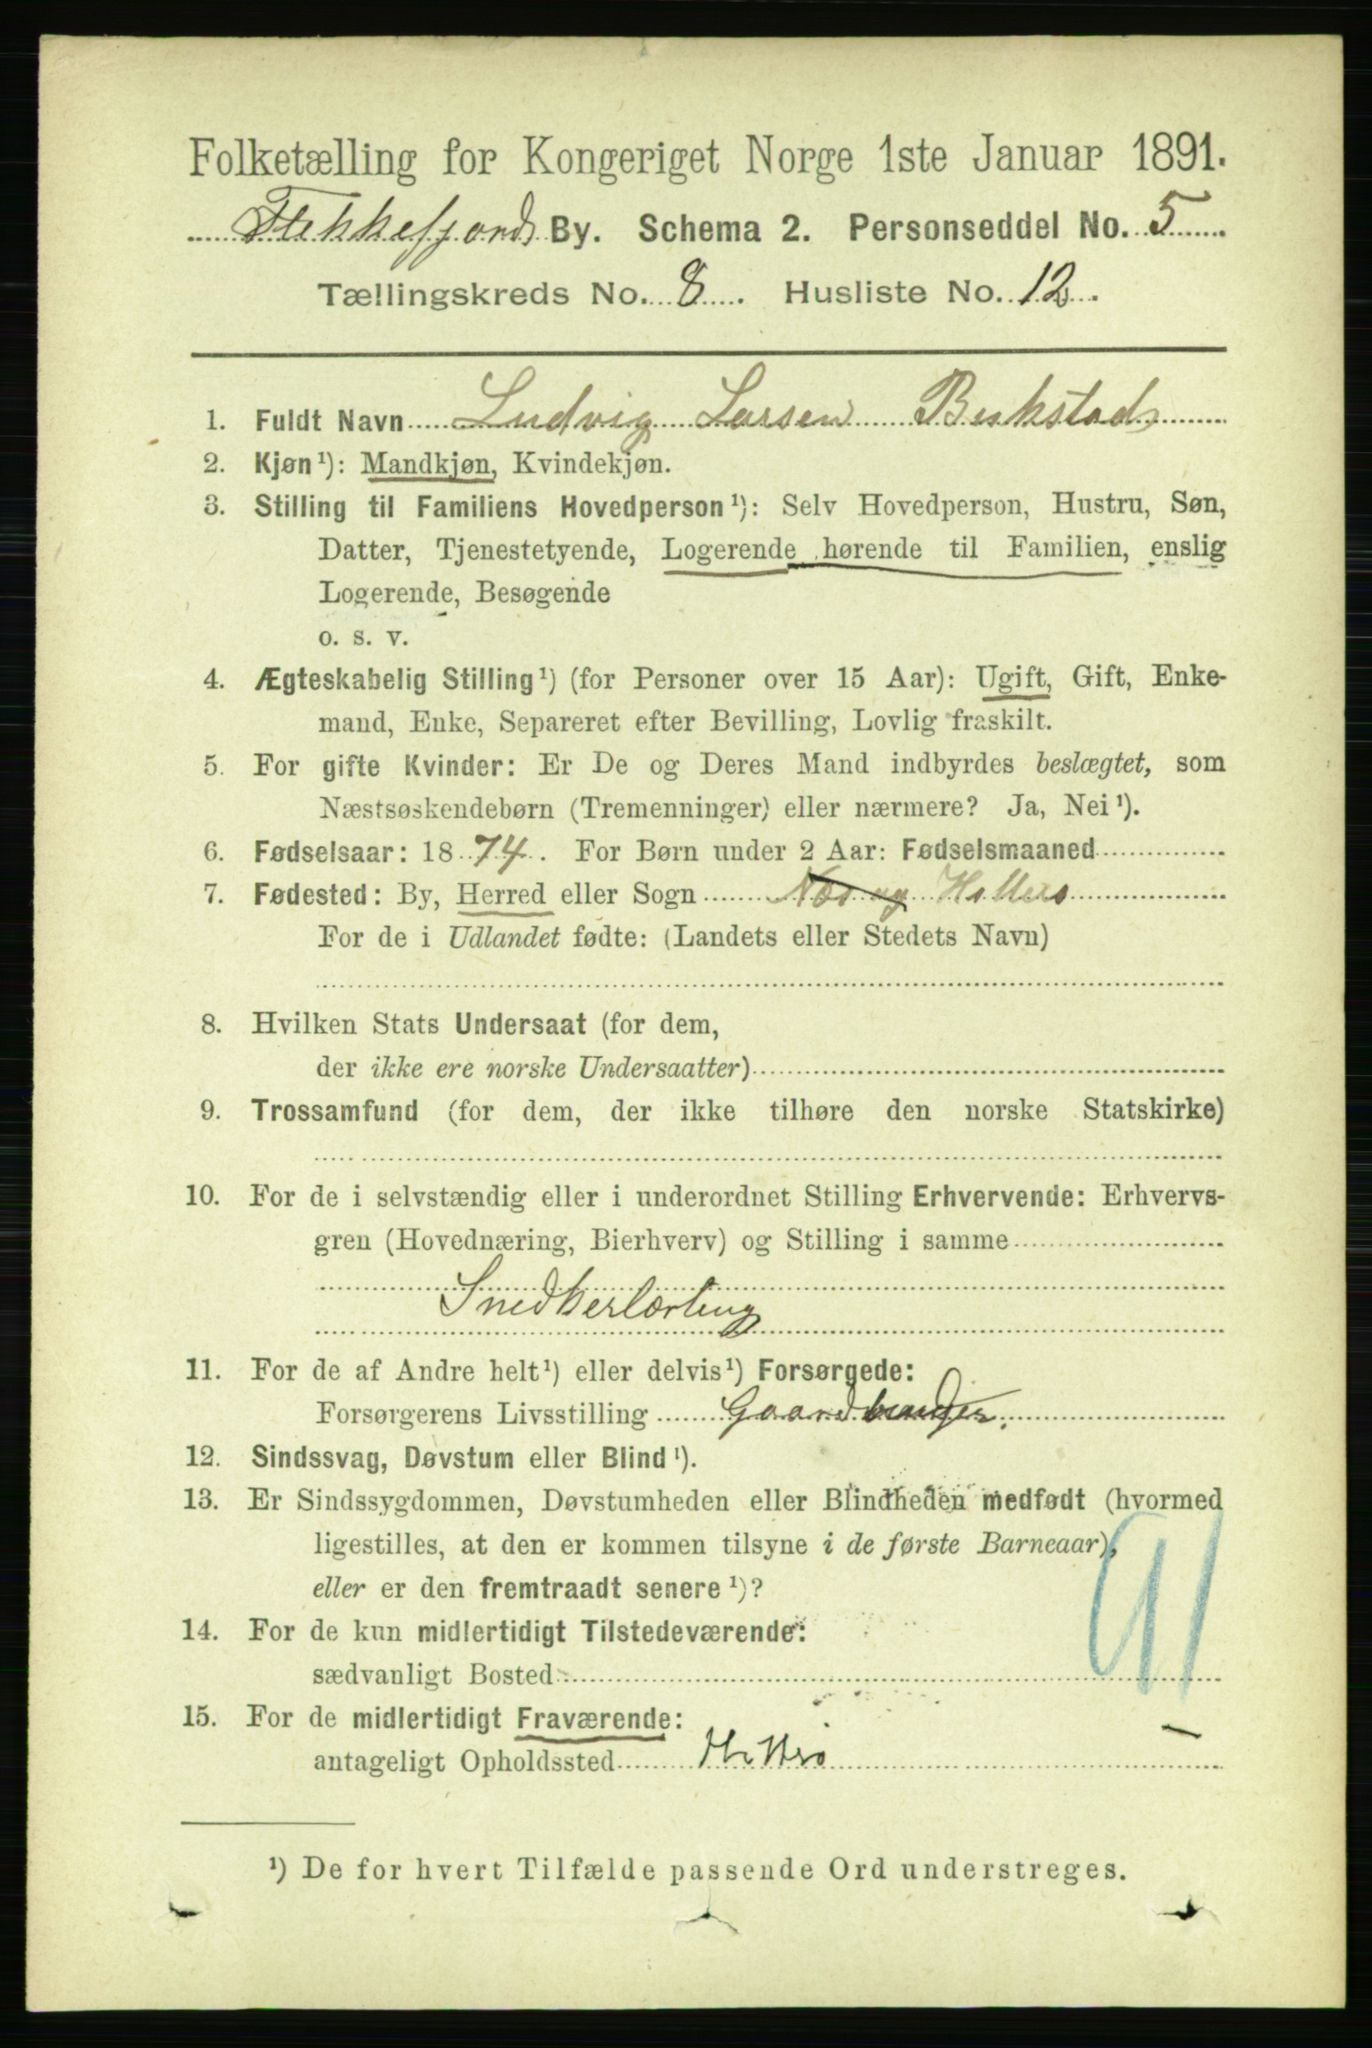 Folketælling for Kongeriget Norge 1ste Januar 1891.
Flekkefjords By. Schema 2. Personseddel No. 5
Tællingskreds No. 8. Husliste No. 12.
1. Fuldt Navn Ludvig Larsen
2. Kjøn¹): Mandkjøn, Kvindekjøn.
3. Stilling til Familiens Hovedperson¹): Selv Hovedperson, Hustru, Søn,
Datter, Tjenestetyende, Logerende hørende til Familien, enslig
Logerende, Besøgende
o. s. v.
4. Ægteskabelig Stilling¹) (for Personer over 15 Aar): Ugift, Gift, Enke-
mand, Enke, Separeret efter Bevilling, Lovlig fraskilt.
5. For gifte Kvinder: Er De og Deres Mand indbyrdes beslægtet, som
Næstsøskendebørn (Tremenninger) eller nærmere? Ja, Nei¹).
6. Fødselsaar: 1874. For Børn under 2 Aar: Fødselsmaaned
7. Fødested: By, Herred eller Sogn Nes og Hitterø
For de i Udlandet fødte: (Landets eller Stedets Navn)
8. Hvilken Stats Undersaat (for dem,
der ikke ere norske Undersaatter)
9. Trossamfund (for dem, der ikke tilhøre den norske Statskirke)
10. For de i selvstændig eller i underordnet Stilling Erhvervende: Erhvervs-
gren (Hovednæring, Bierhverv) og Stilling i samme
Snedkerlærling
11. For de af Andre helt¹) eller delvis¹) Forsørgede:
Forsørgerens Livsstilling Gaardbruger.
12. Sindssvag, Døvstum eller Blind¹).
13. Er Sindssygdommen, Døvstumheden eller Blindheden medfødt (hvormed
ligestilles, at den er kommen tilsyne i de første Barneaar),
eller er den fremtraadt senere¹)?
14. For de kun midlertidigt Tilstedeværende:
sædvanligt Bosted
15. For de midlertidigt Fraværende:
antageligt Opholdssted Hitterø
¹) De for hvert Tilfælde passende Ord understreges.